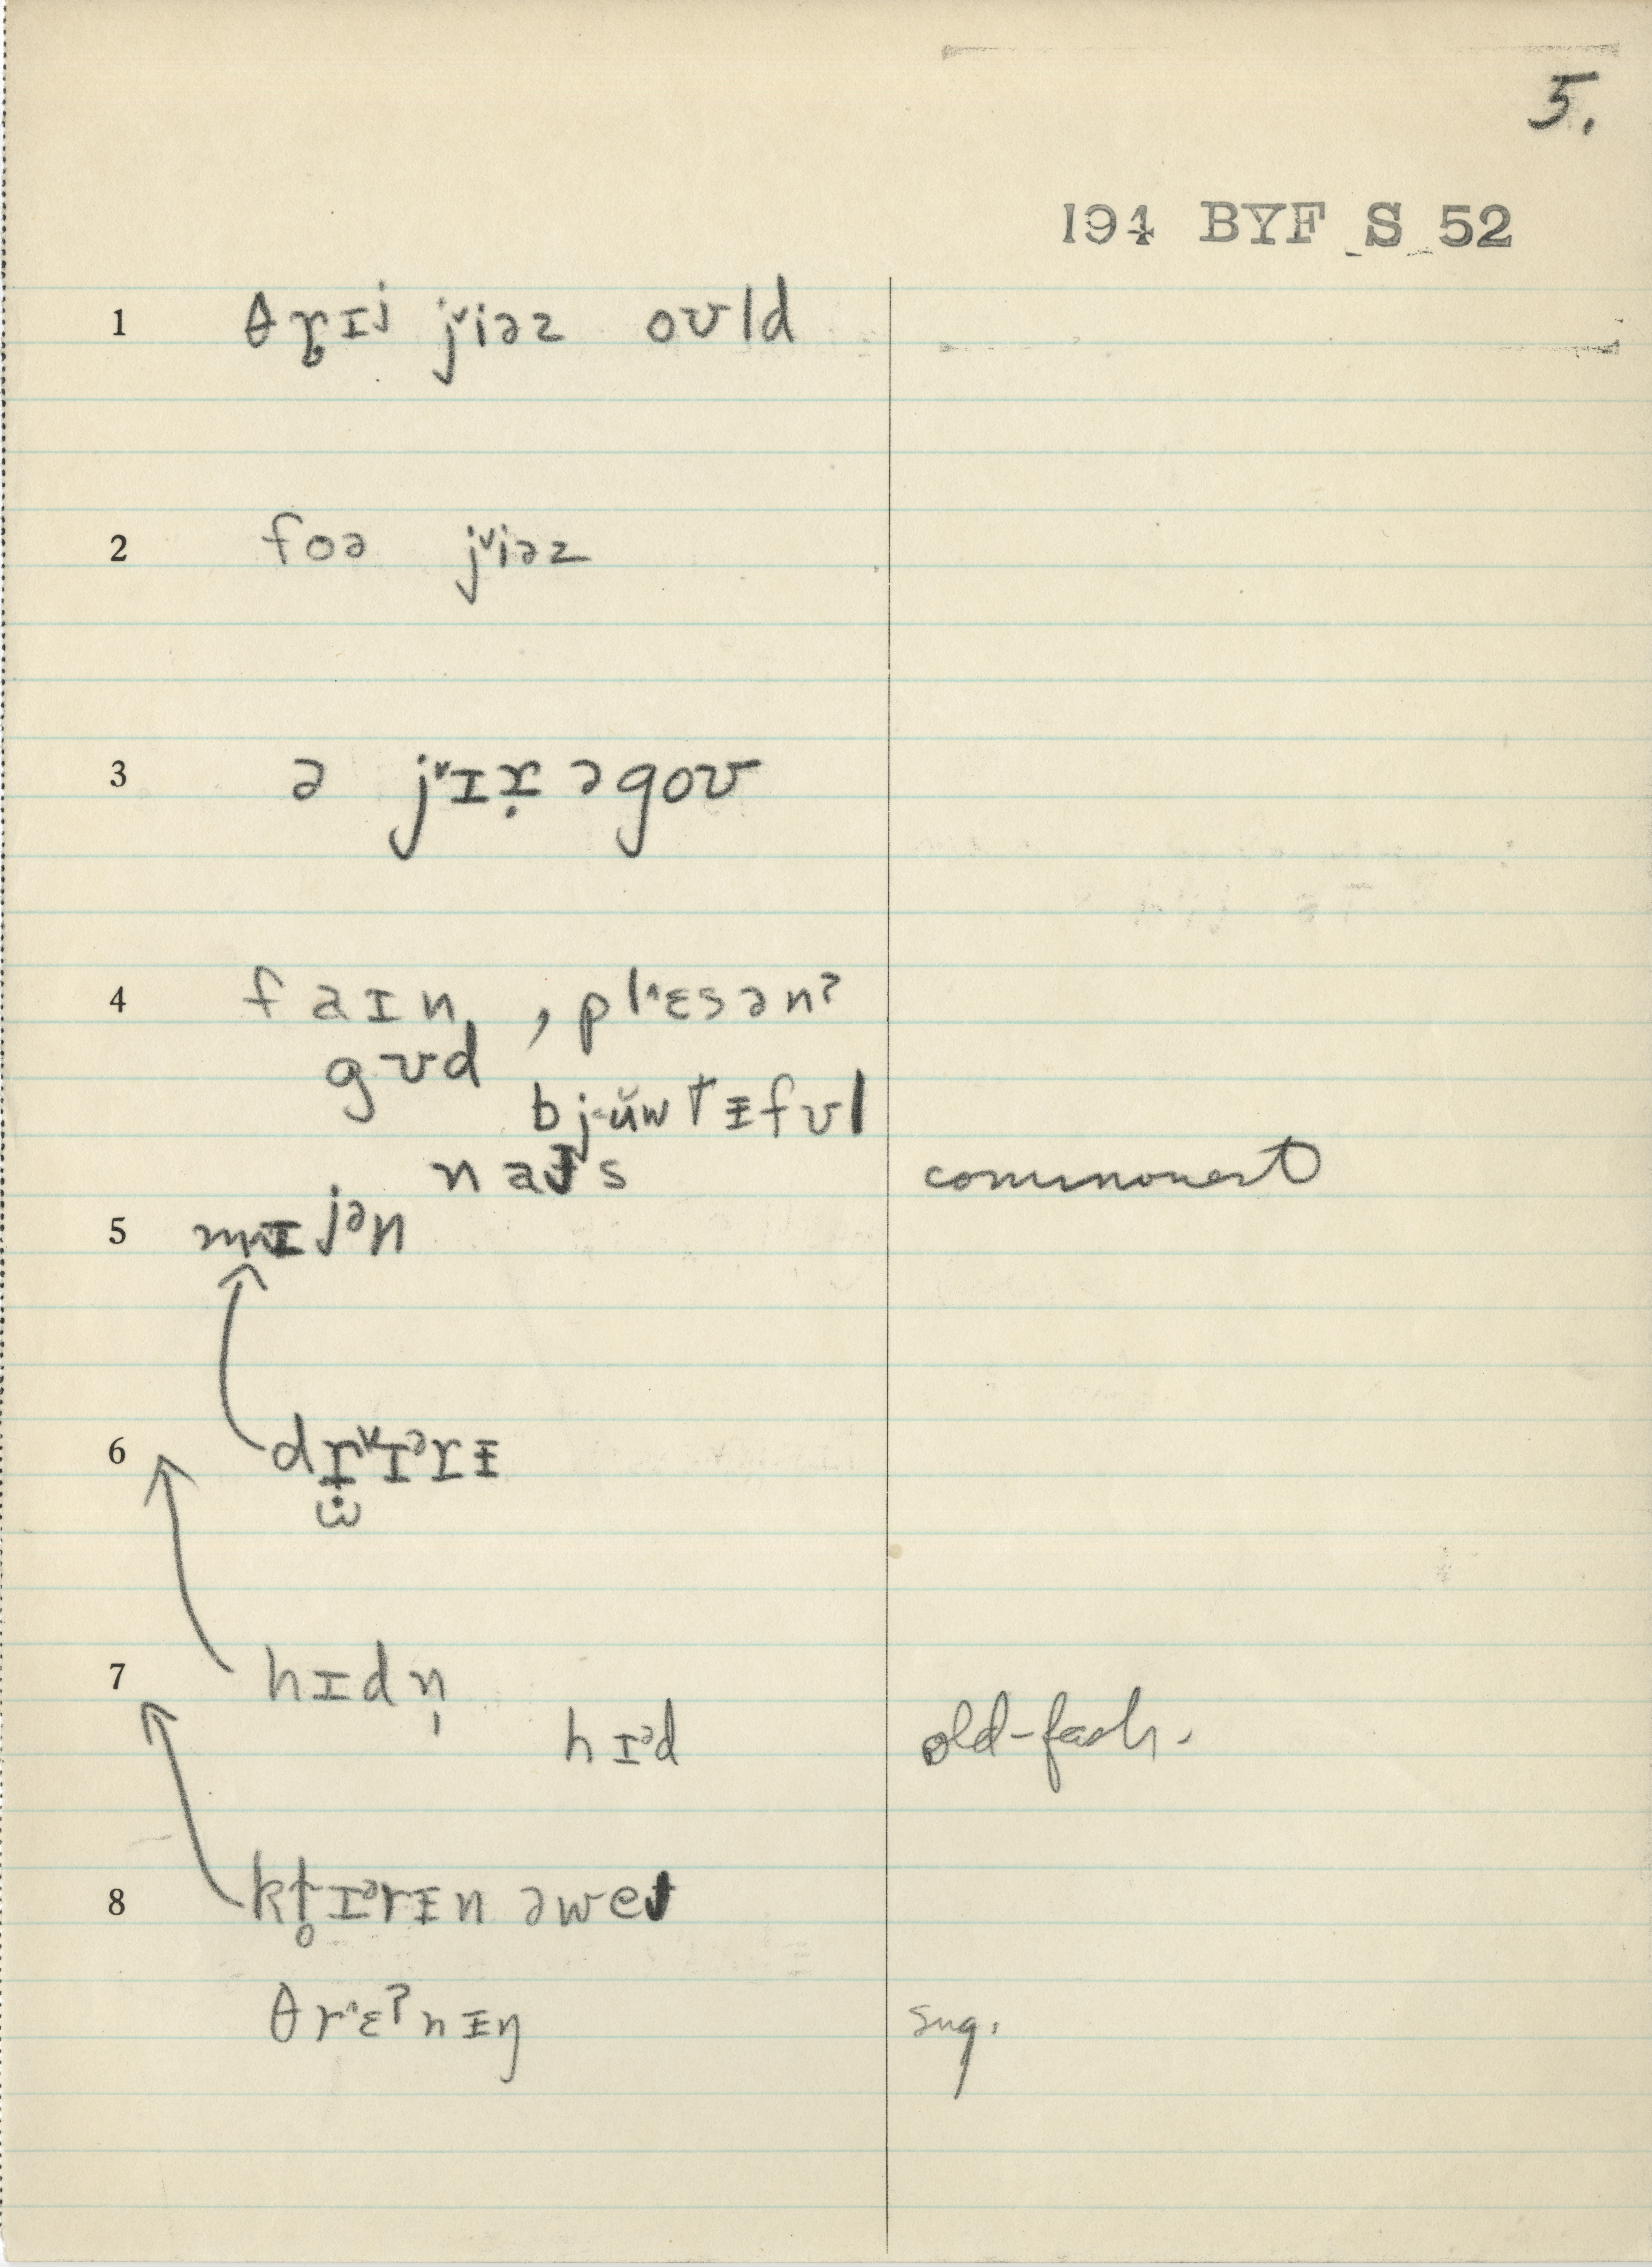 5.
194 BYF S 52
1 θɽ̥ɪj jᵛiəz oʊld
2 foə jᵛiəz
3 ə jᵛɪɾ̣ əgoʊ
4 faɪn, pl^ɛsənʔ
gʊd
bj<ŭwtᵻfʊl
naɪs commonest
5 mɪjᵊn
6 drᵛɪᵊrᵻ
7 hɪdn̩
hɪᵊd old-fash.
8 kl̥ɪᵊrᵻn əweɪ
θr^ɛʔnᵻŋ sug.